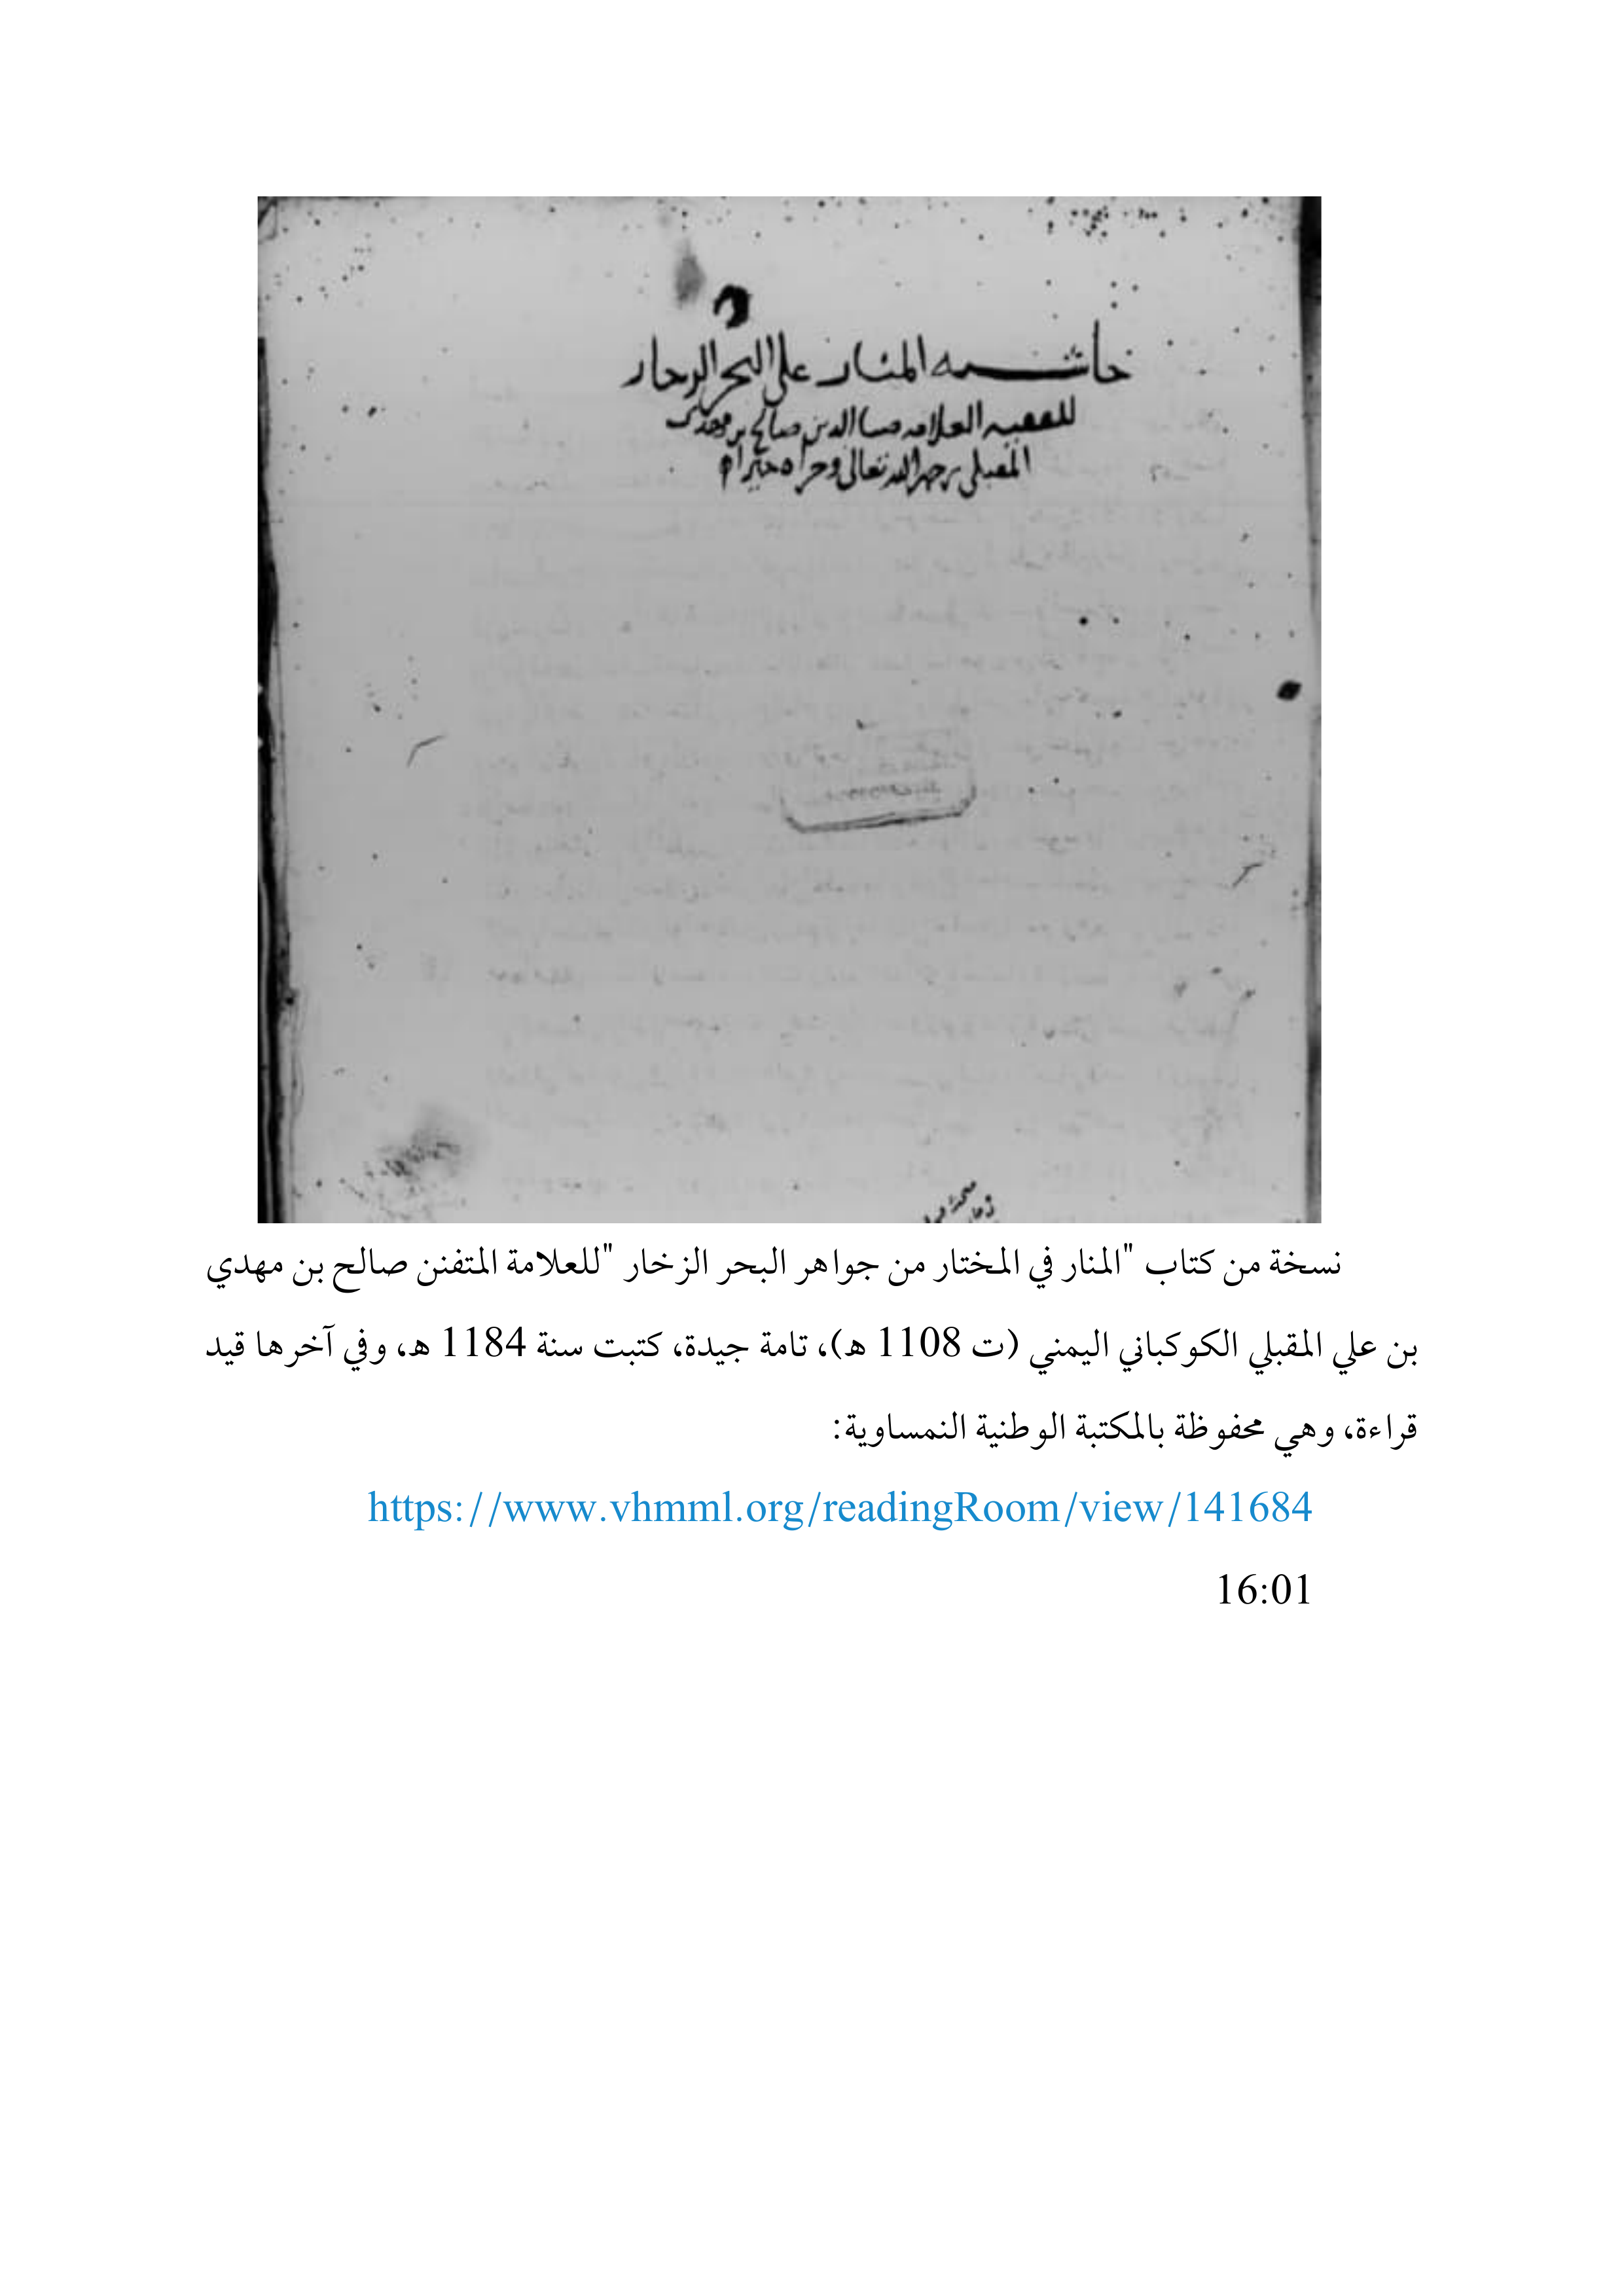 حاشيه المنار على البحر الزخار
للفقيه العلامه ضيا الدين صالح بن مهدي
المقبلي رحمه الله تعالى وجزاه خيرا
نسخة من كتاب "المنار في المختار من جواهر البحر الزخار "للعلامة المتفنن صالح بن مهدي
بن علي المقبلي الكوكباني اليمني (ت 1108 هـ)، تامة جيدة، كتبت سنة 1184 هـ، وفي آخرها قيد
قراءة، وهي محفوظة بالمكتبة الوطنية النمساوية:
https://www.vhmml.org/readingRoom/view/141684
16:01